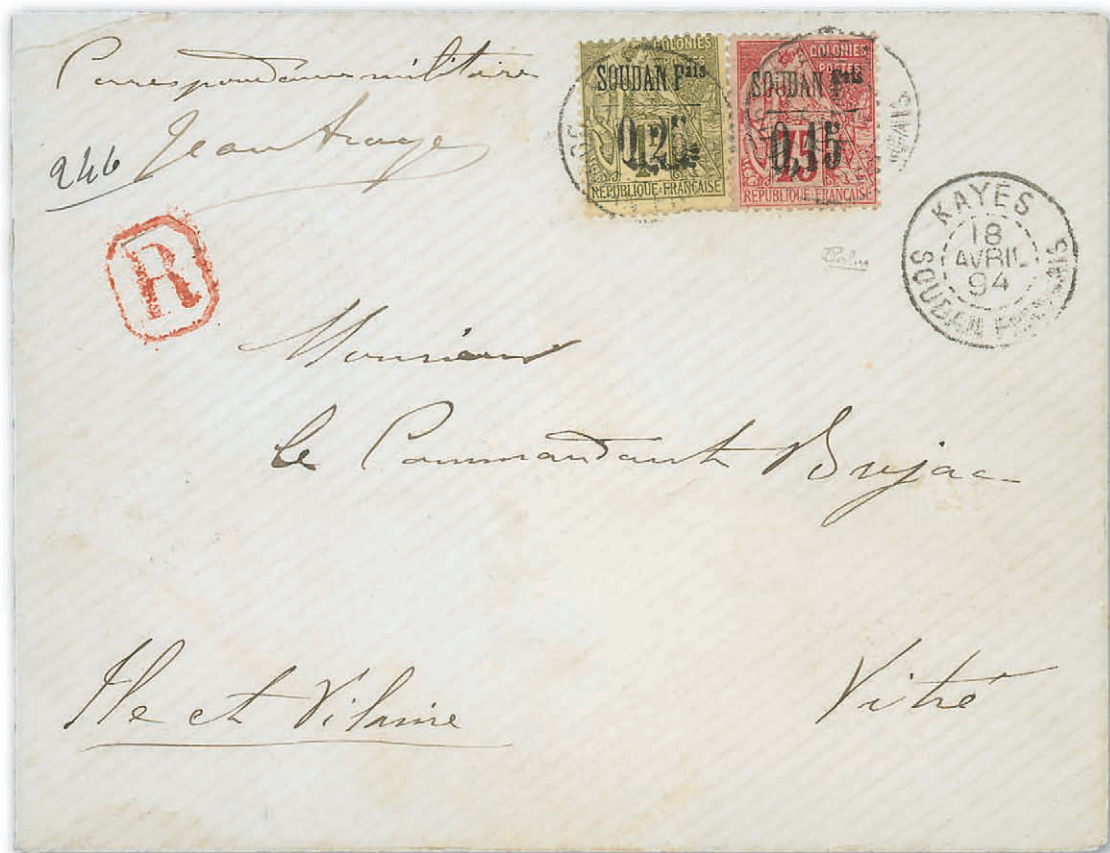 Correspondance militaire
246
COLONIES
POSTES
SOUDAN Fais
0,25
RÉPUBLIQUE FRANÇAISE
COLONIES
POSTES
SOUDAN Fais
0,15
75
RÉPUBLIQUE FRANÇAISE
KAYES
18
AVRIL
94
SOUDAN FRANÇAIS
R
Monsieur
le Commandant Bujac
Ile et Vilaine
Vitré